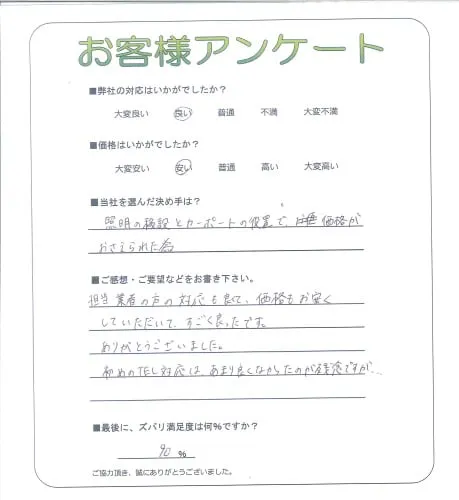 お客様アンケート
■弊社の対応はいかがでしたか？
大変良い 良い 普通 不満 大変不満
■価格はいかがでしたか？
大変安い 安い 普通 高い 大変高い
■当社を選んだ決め手は？
照明の移設とカーポートの設置で、価格が
おさえられた為
■ご感想・ご要望などをお書き下さい。
担当業者の方の対応も良くて、価格もお安く
していただいて、すごく良かったです。
ありがとうございました。
初めのTEL対応は、あまり良くなかったのが残念ですが…
■最後に、ズバリ満足度は何％ですか？
90 %
ご協力頂き、誠にありがとうございました。